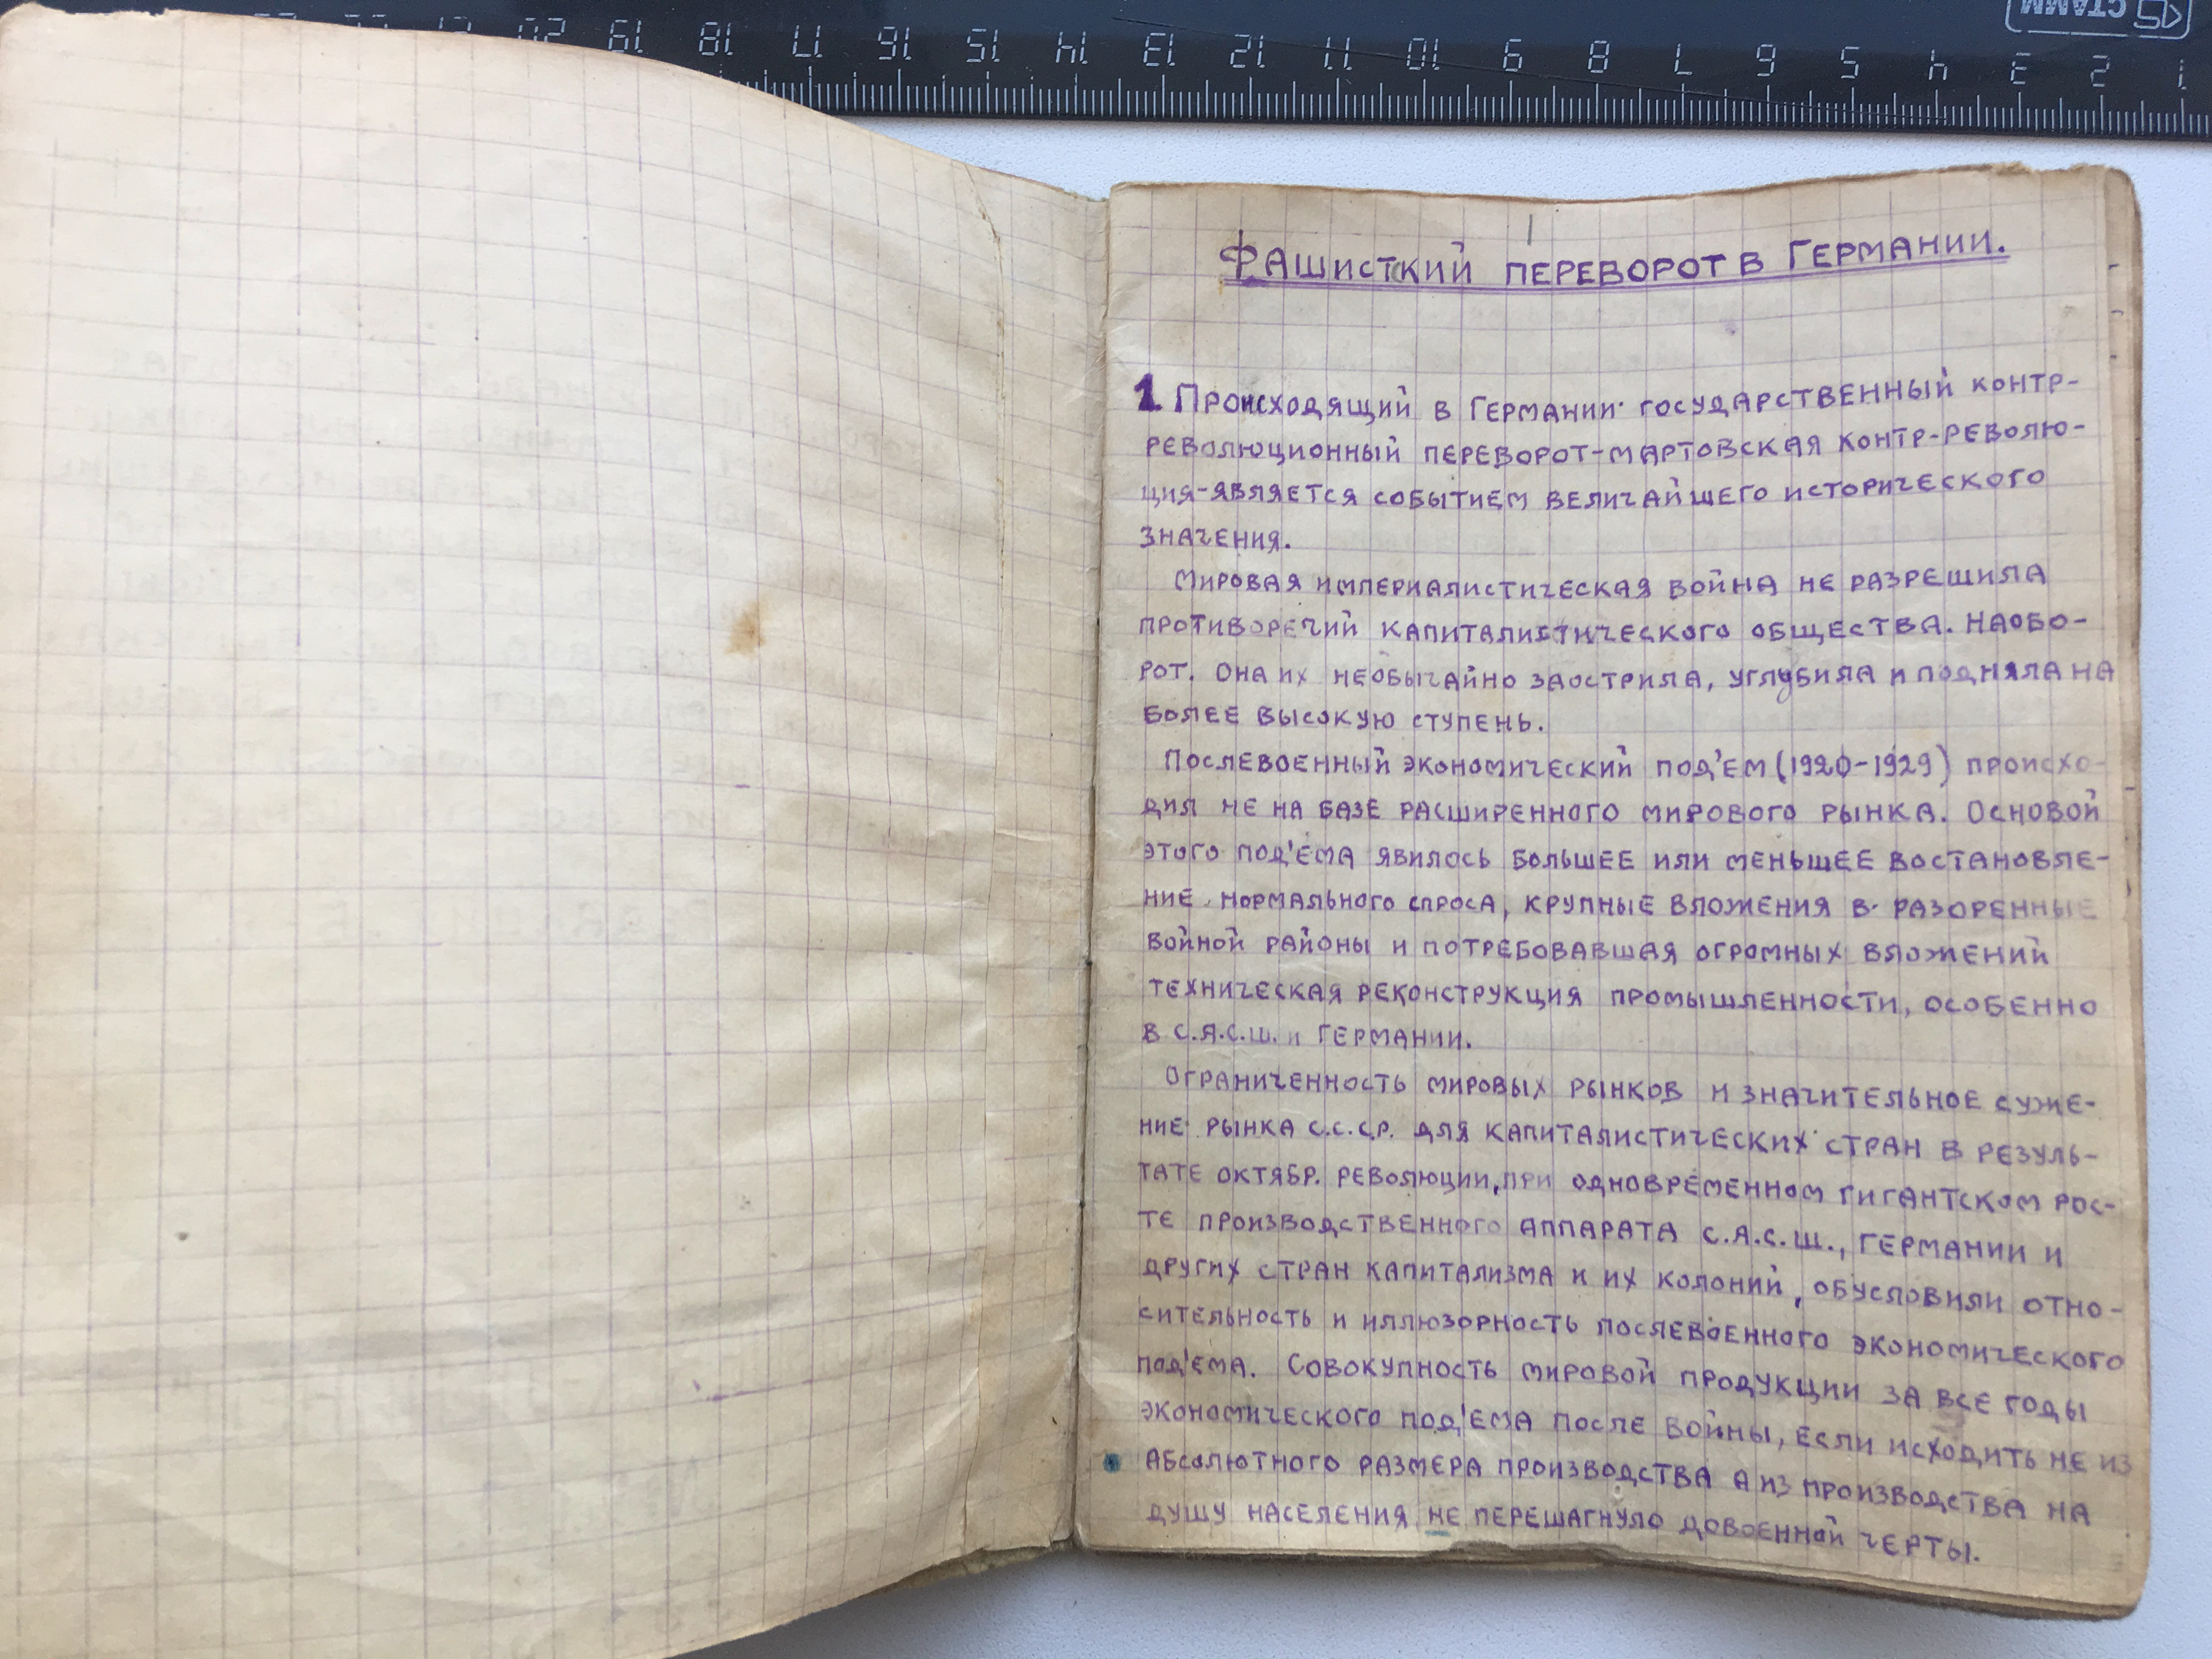 СТАММ
20 19 18 17 16 15 14 13 12 11 10 9 8 7 6 5 4 3 2 1
ФАШИСТКИЙ ПЕРЕВОРОТ В ГЕРМАНИИ.
1. ПРОИСХОДЯЩИЙ В ГЕРМАНИИ ГОСУДАРСТВЕННЫЙ КОНТР-
РЕВОЛЮЦИОННЫЙ ПЕРЕВОРОТ-МАРТОВСКАЯ КОНТР-РЕВОЛЮ-
ЦИЯ-ЯВЛЯЕТСЯ СОБЫТИЕМ ВЕЛИЧАЙШЕГО ИСТОРИЧЕСКОГО
ЗНАЧЕНИЯ.
МИРОВАЯ ИМПЕРИАЛИСТИЧЕСКАЯ ВОЙНА НЕ РАЗРЕШИЛА
ПРОТИВОРЕЧИЙ КАПИТАЛИСТИЧЕСКОГО ОБЩЕСТВА. НАОБО-
РОТ. ОНА ИХ НЕОБЫЧАЙНО ЗАОСТРИЛА, УГЛУБИЛА И ПОДНЯЛА НА
БОЛЕЕ ВЫСОКУЮ СТУПЕНЬ.
ПОСЛЕВОЕННЫЙ ЭКОНОМИЧЕСКИЙ ПОД'ЕМ (1920-1929) ПРОИСХО-
ДИЛ НЕ НА БАЗЕ РАСШИРЕННОГО МИРОВОГО РЫНКА. ОСНОВОЙ
ЭТОГО ПОД'ЕМА ЯВИЛОСЬ БОЛЬШЕЕ ИЛИ МЕНЬШЕЕ ВОСТАНОВЛЕ-
НИЕ НОРМАЛЬНОГО СПРОСА, КРУПНЫЕ ВЛОЖЕНИЯ В РАЗОРЕННЫЕ
ВОЙНОЙ РАЙОНЫ И ПОТРЕБОВАВШАЯ ОГРОМНЫХ ВЛОЖЕНИЙ
ТЕХНИЧЕСКАЯ РЕКОНСТРУКЦИЯ ПРОМЫШЛЕННОСТИ, ОСОБЕННО
В С.А.С.Ш. И ГЕРМАНИИ.
ОГРАНИЧЕННОСТЬ МИРОВЫХ РЫНКОВ И ЗНАЧИТЕЛЬНОЕ СУЖЕ-
НИЕ РЫНКА С.С.С.Р. ДЛЯ КАПИТАЛИСТИЧЕСКИХ СТРАН В РЕЗУЛЬ-
ТАТЕ ОКТЯБР. РЕВОЛЮЦИИ, ПРИ ОДНОВРЕМЕННОМ ГИГАНТСКОМ РОС-
ТЕ ПРОИЗВОДСТВЕННОГО АППАРАТА С.А.С.Ш., ГЕРМАНИИ И
ДРУГИХ СТРАН КАПИТАЛИЗМА И ИХ КОЛОНИЙ, ОБУСЛОВИЛИ ОТНО-
СИТЕЛЬНОСТЬ И ИЛЛЮЗОРНОСТЬ ПОСЛЕВОЕННОГО ЭКОНОМИЧЕСКОГО
ПОД'ЕМА. СОВОКУПНОСТЬ МИРОВОЙ ПРОДУКЦИИ ЗА ВСЕ ГОДЫ
ЭКОНОМИЧЕСКОГО ПОД'ЕМА ПОСЛЕ ВОЙНЫ, ЕСЛИ ИСХОДИТЬ НЕ ИЗ
АБСОЛЮТНОГО РАЗМЕРА ПРОИЗВОДСТВА А ИЗ ПРОИЗВОДСТВА НА
ДУШУ НАСЕЛЕНИЯ НЕ ПЕРЕШАГНУЛО ДОВОЕННОЙ ЧЕРТЫ.